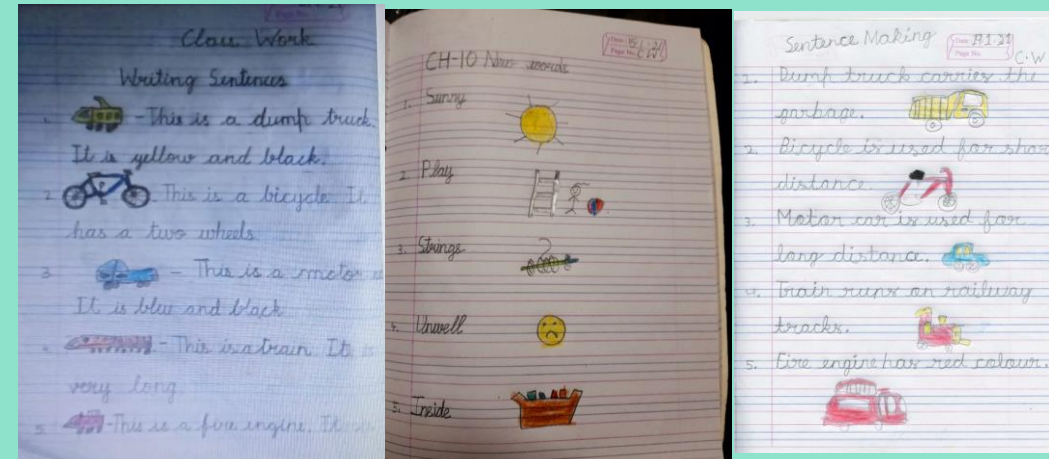 Class Work
Writing Sentences
1. - This is a dump truck.
It is yellow and black.
2 This is a bicycle. It
has a two wheels
3 - This is a motor
It is blue and black
4. - This is a train. It is
very long
5. - This is a fire engine. It
Date:
Page No.
CH-10 New words
1. Sunny
2. Play
3. Strings
4. Unwell
5. Inside
Sentence Making
Date: 19.1.21
Page No.
C.W
1. Dump truck carries the
garbage.
2. Bicycle is used for
distance.
3. Motor car is used for
long distance.
4. Train runs on railway
tracks.
5. Fire engine has red colour.